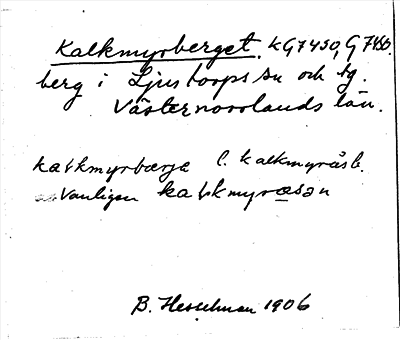 Kalkmyrberget. KG7450, G7460.
berg i Ljustorps sn och tg.
Västernorrlands län.
kalkmyrbærje l. kalkmyråsb.
Vanligen kalkmyræsən
B. Hesselman 1906